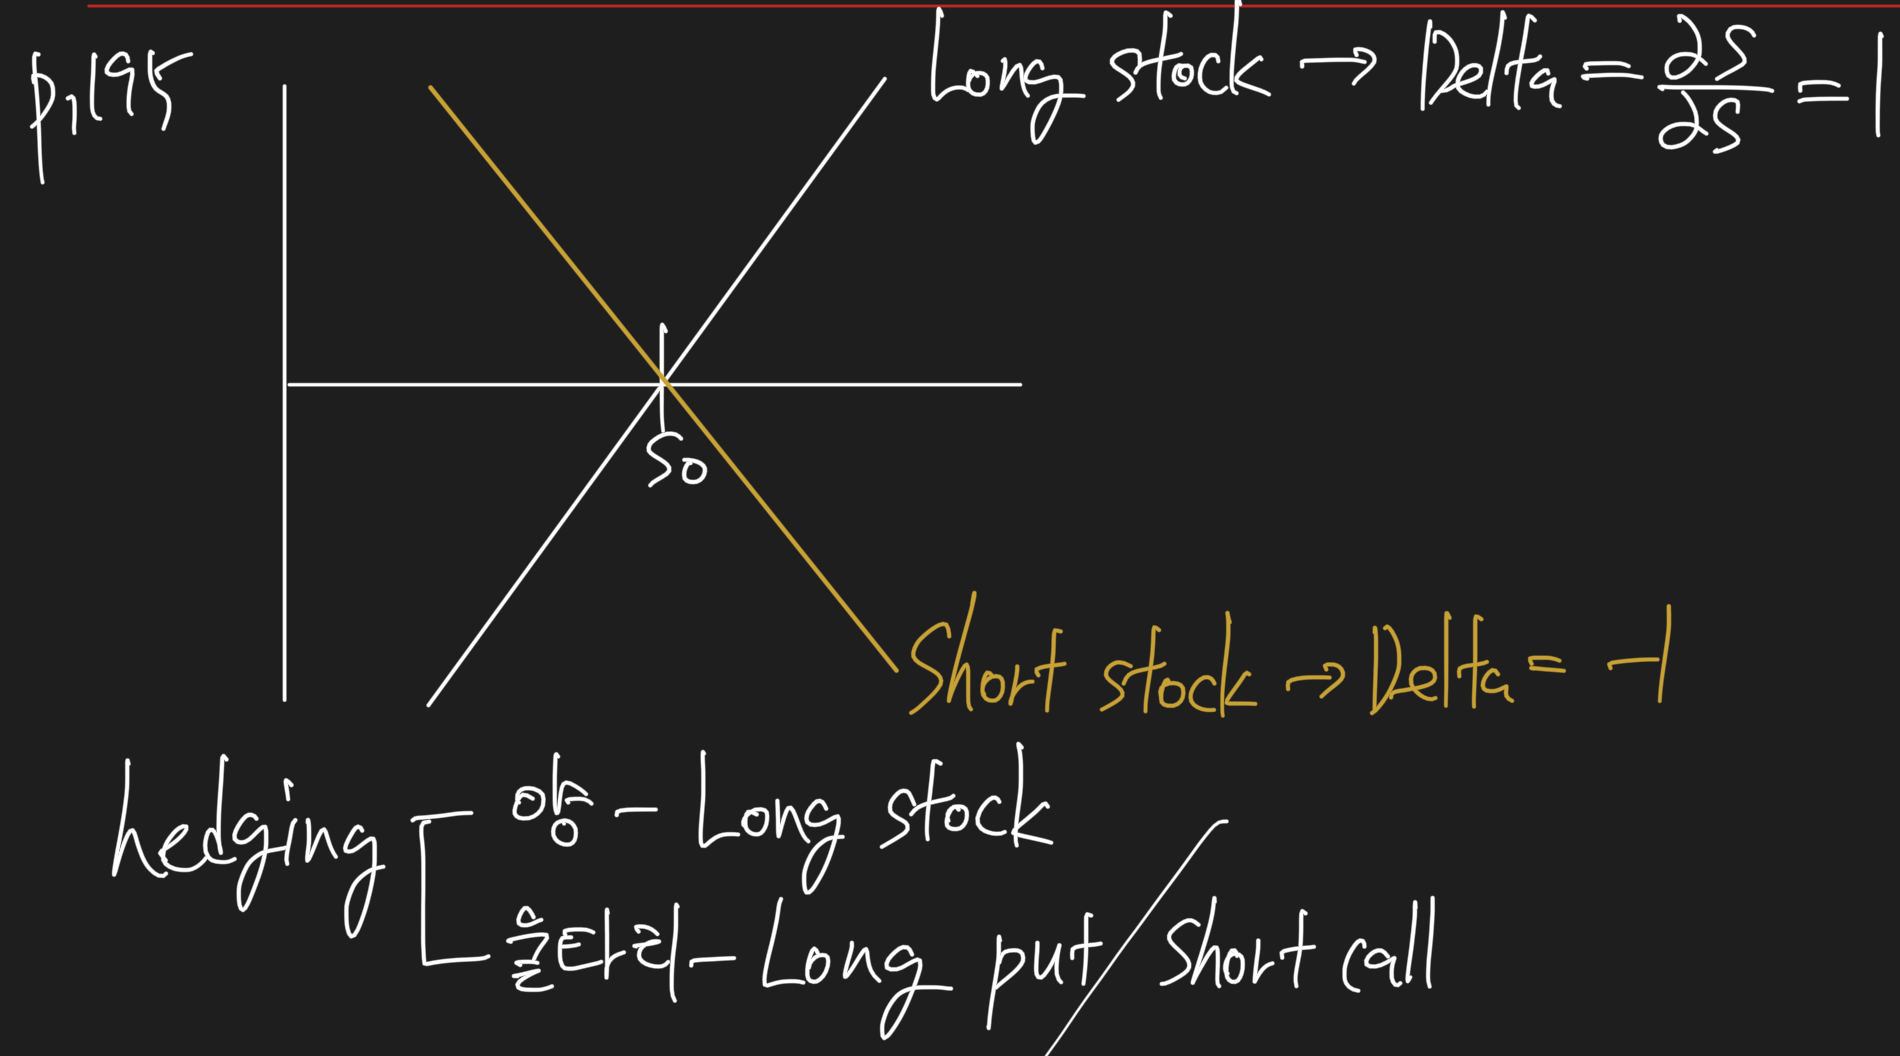 p.195
Long stock → Delta = ∂S/∂S = 1
S0
Short stock → Delta = -1
hedging
양 - Long stock
울타리 - Long put / Short call